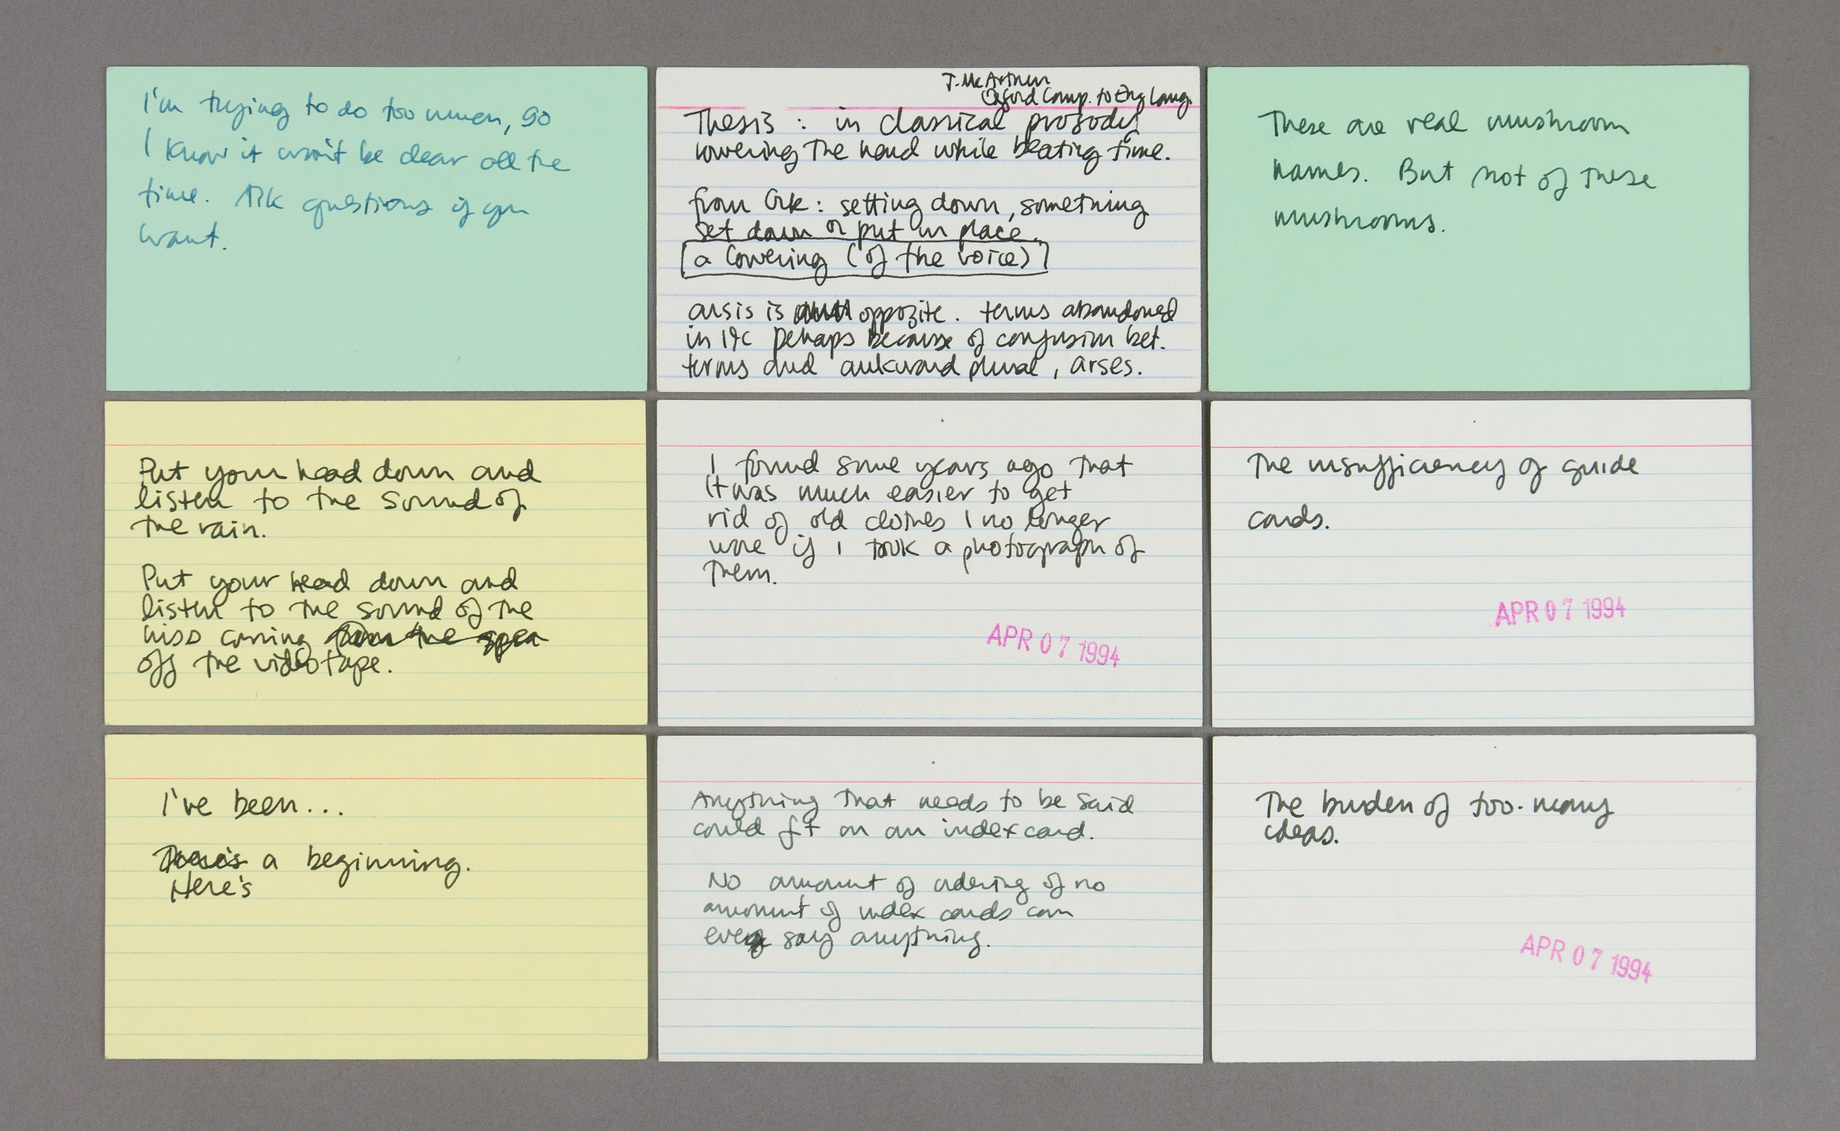 I'm trying to do too much, so
I know it won't be clear all the
time. Ask questions if you
want.
T. McArthur
Oxford Comp. to Eng Lang.
Thesis : in classical prosody
lowering the hand while beating time.
from Grk : setting down, something
set down or put in place.
a lowering (of the voice)
arsis is opposite. terms abandoned
in 19c perhaps because of confusion bet.
terms and awkward plural, arses.
These are real mushroom
names. But not of these
mushrooms.
Put your head down and
listen to the sound of
the rain.
Put your head down and
listen to the sound of the
hiss coming from the spea
off the videotape.
I found some years ago that
it was much easier to get
rid of old clothes I no longer
wore if I took a photograph of
them.
APR 07 1994
The insufficiency of guide
cards.
APR 07 1994
I've been...
There's a beginning.
Here's
Anything that needs to be said
could fit on an index card.
No amount of ordering of no
amount of index cards can
ever say anything.
The burden of too many
ideas.
APR 07 1994